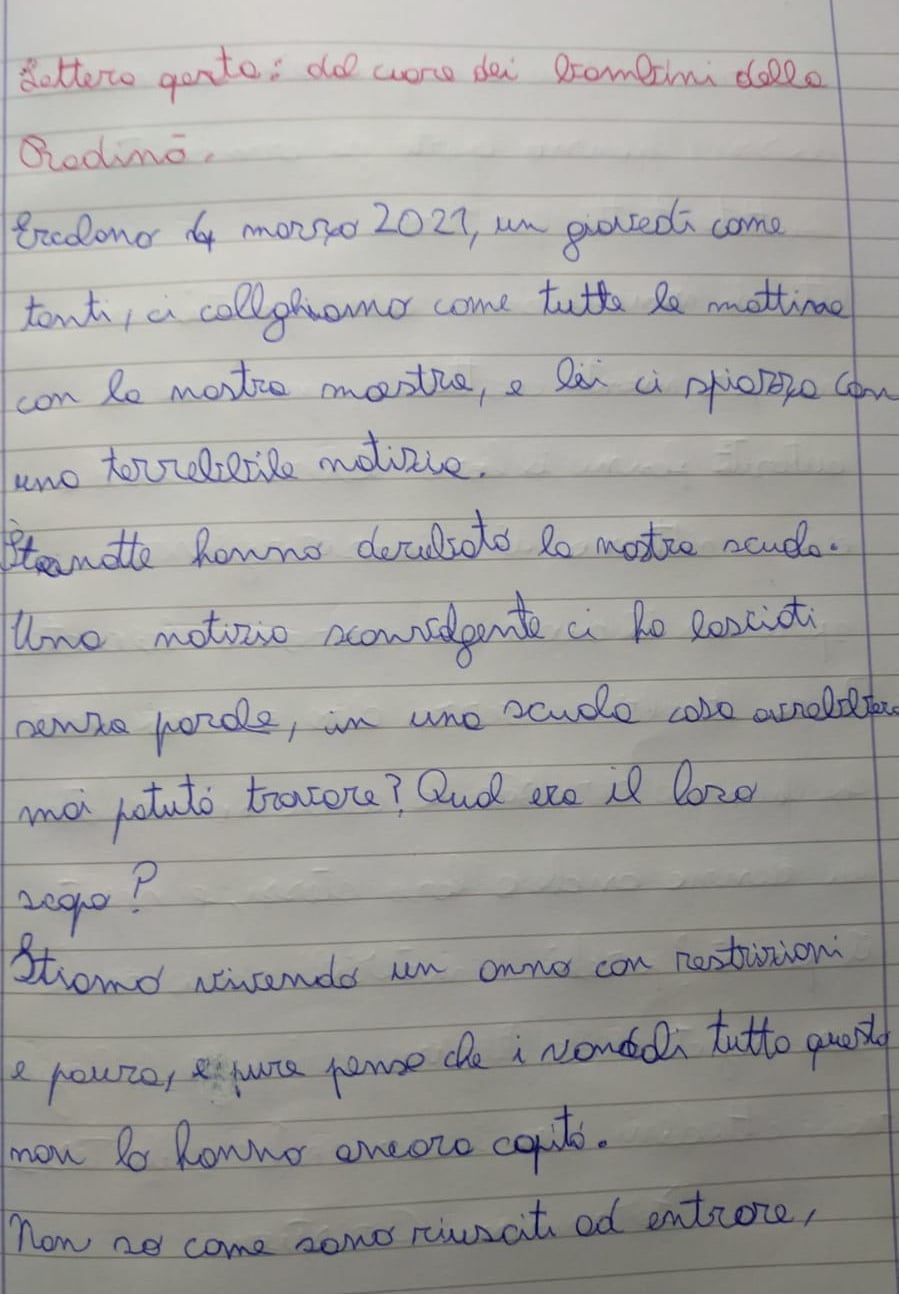 Lettera aperta: dal cuore dei bambini della
Rodinò.
Ercolano 4 marzo 2021, un giovedì come
tanti, ci collghiamo come tutte le mattine
con la nostra maestra, e lei ci spiazza con
una terrebile notizia.
Stanotte hanno derubato la nostra scuola.
Una notizia sconvolgente ci ha lasciati
senza parole, in una scuola cosa avrebbero
mai potuto trovare? Qual era il loro
scopo?
Stiamo vivendo un anno con restrizioni
e paura, e pure penso che i vandali tutto questo
non lo hanno ancora capito.
Non so come sono riusciti ad entrare,